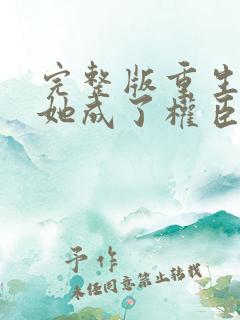 完整版重生
她成了權臣
予作
未任同意禁止转载